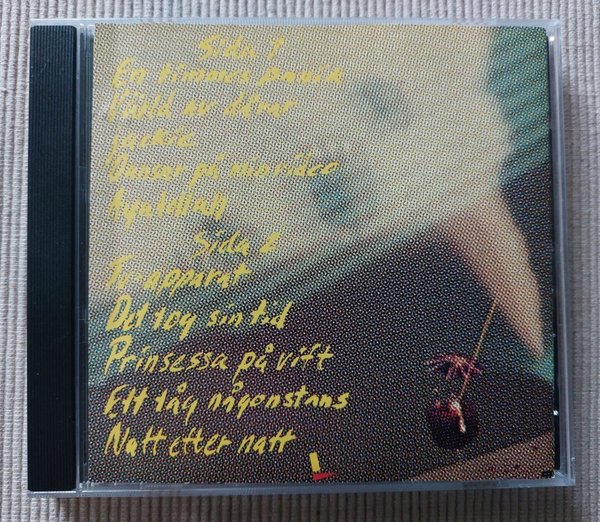 Sida 1
En timmes panik
Våld av dårar
Jackie
Dansar på min video
Sida 2
TV-apparat
Det tog sin tid
Prinsessa på vift
Ett tåg någonstans
Natt efter natt